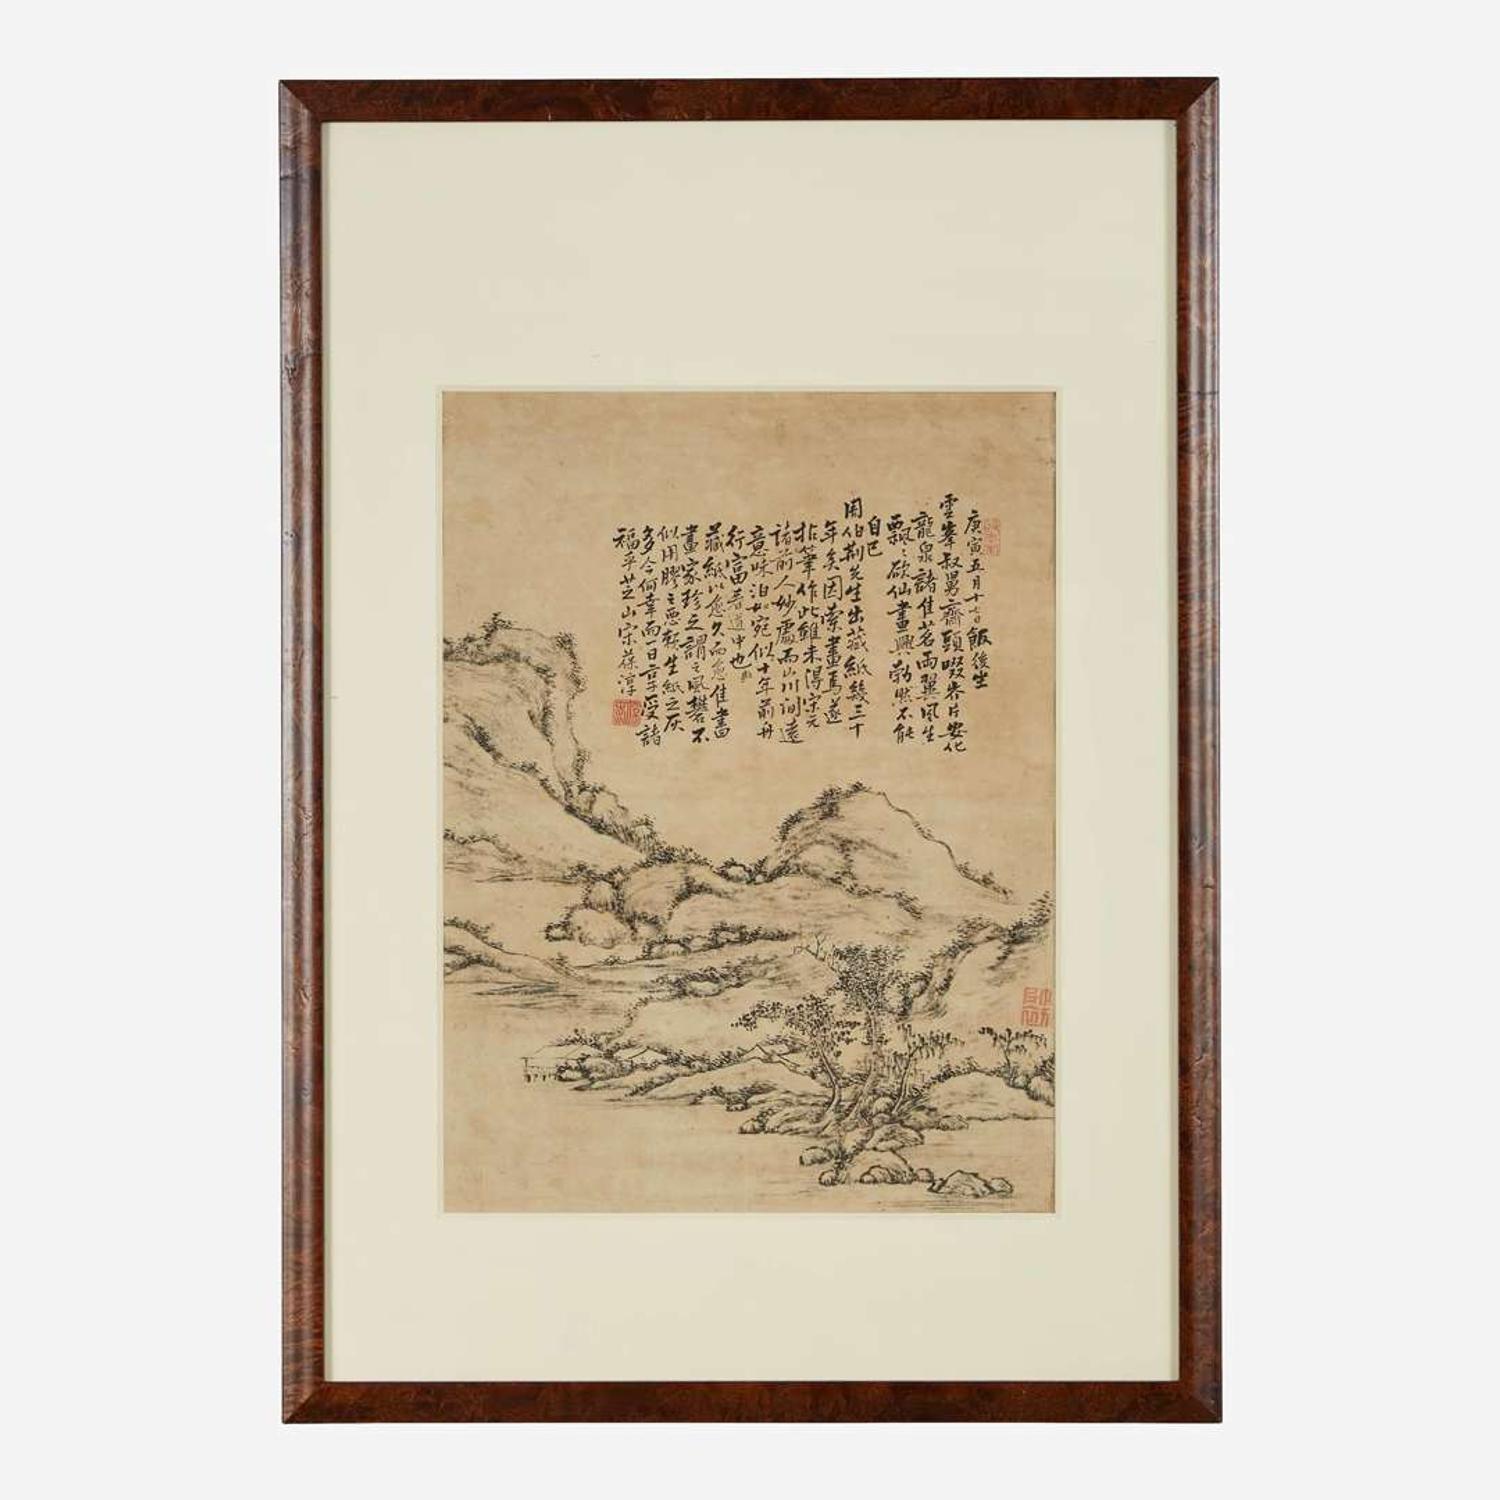 庚寅五月十七日飯後坐
雲峯叔舅齋頭啜岕片安化
龍泉諸佳茗兩翼風生
飄〻欲仙畫興勃然不能
自已
用伯荆先生出藏紙幾三十
年矣因索畫焉遂
拈筆作此雖未得宋元
諸前人妙處而山川詞遠
意味泊如宛似十年前舟
行富春道中也
藏紙以愈久而愈佳書
畫家珍之謂之風礬不
似用膠之惡礬生紙之灰
多今何幸而一日享受諸
福乎芝山宋葆淳